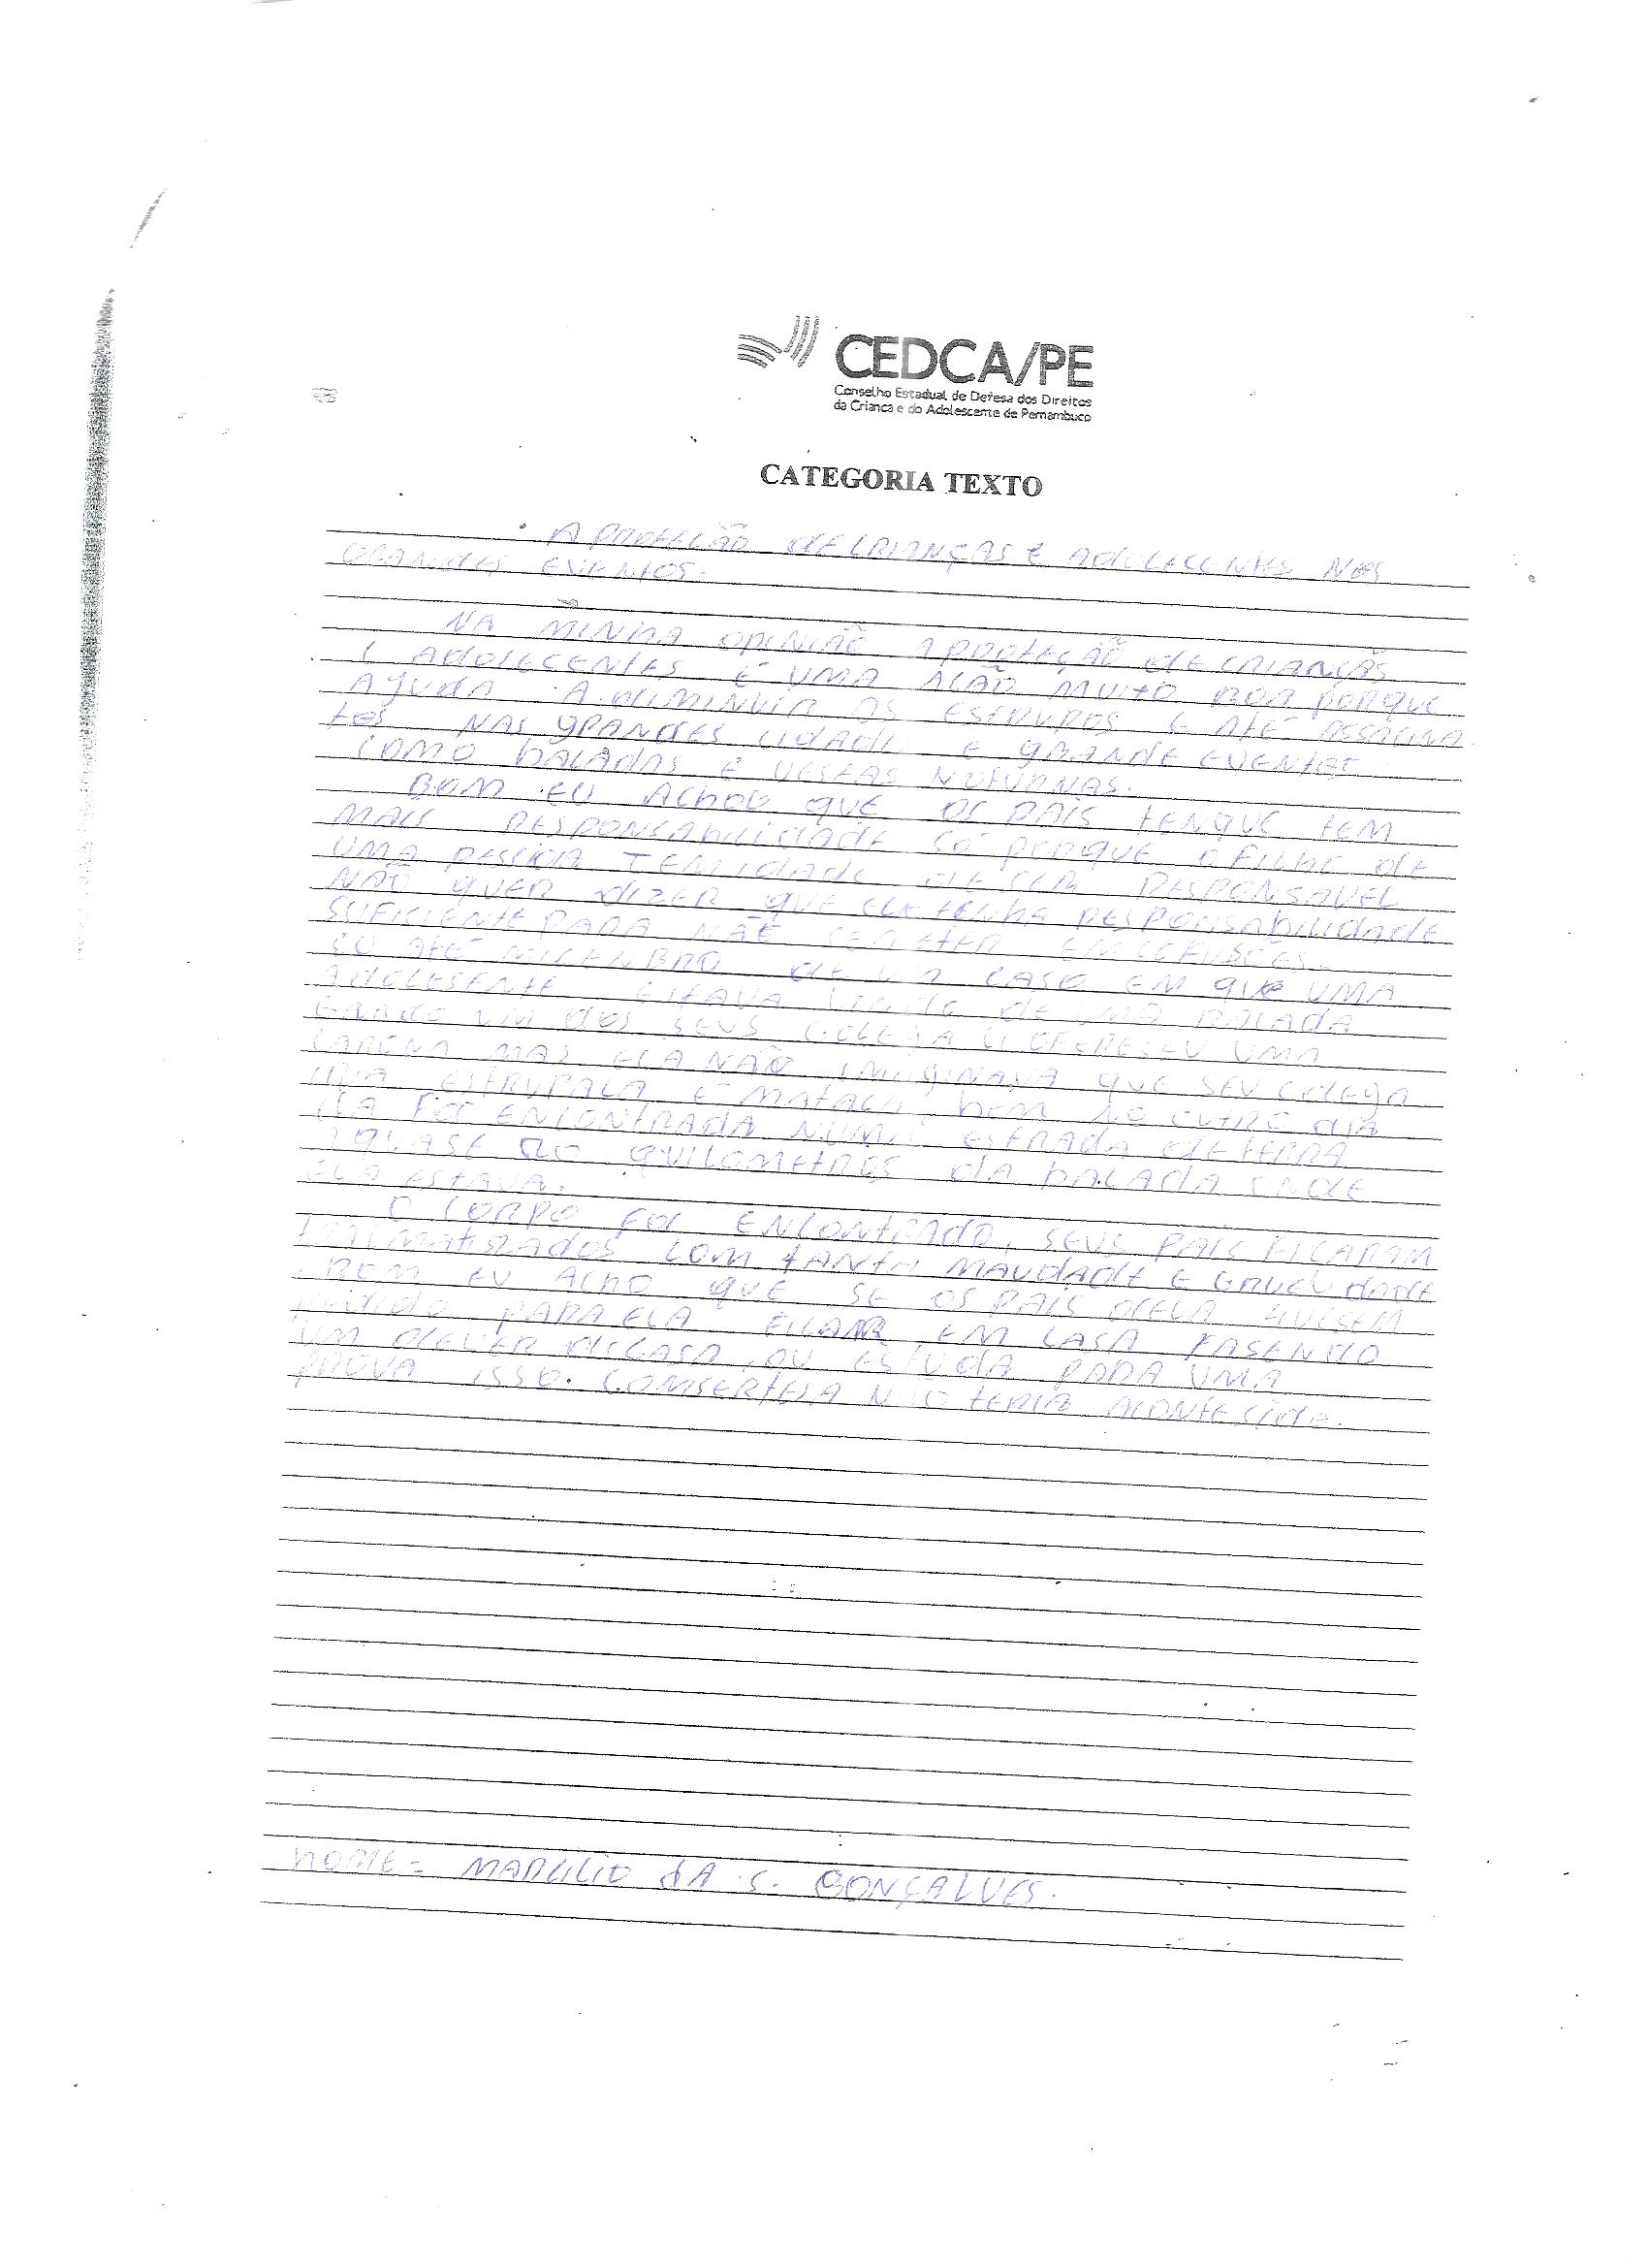 CEDCA/PE
Conselho Estadual de Defesa dos Direitos
da Criança e do Adolescente de Pernambuco
CATEGORIA TEXTO
A PROTEÇÃO DE CRIANÇAS E ADOLECENTES NOS
GRANDES EVENTOS.
NA MINHA OPINIÃO A PROTEÇÃO DE CRIANÇAS
E ADOLECENTES É UMA AÇÃO MUITO BOA PORQUE
AJUDA A DIMINUIR OS ESTRUPOS E ATÉ ASSACINA
TOS NAS GRANDES CIDADE E GRANDE EVENTOS
COMO BALADAS E VESTAS NOTURNAS.
BOM EU ACHOU QUE OS PAIS TENQUE TEM
MAIS RESPONSABILIDADE SÓ PORQUE O FILHO DE
UMA PESSOA TEM IDADE DE SER RESPONSAVEL
NÃO QUER DIZER QUE ELE TENHA RESPONSABILIDADE
SUFICIENTE PARA NÃO SE METER EM
EU ATÉ MI LENBRO DE UM CASO EM QUE UMA
ADOLESENTE ESTAVA VINDO DE UMA BALADA
UM DOS SEUS COLEGA LI OFERESEU UMA
CARONA MAS ELA NÃO IMAGINAVA QUE SEU COLEGA
IRIA ESTRUPALA E MATALA BOM NO OUTRO DIA
ELA FOI ENCONTRADA NUMA ESTRADA DE TERRA
AQUASE 20 QUILOMETROS DA BALADA ONDE
ELA ESTAVA.
O CORPO FOI ENCONTRADO, SEUS PAIS FICARAM
TRALMATIZADOS COM TANTA MAUDADE E CRUEUDADE
BOM EU ACHO QUE SE OS PAIS DELA TIVESEM
PEDIDO PARA ELA FICAR EM CASA FASENDO
UM DEVER DE CASA OU ESTUDA PARA UMA
PROVA ISSO COMSERTESA NÃO TERIA ACONTESIDO.
NOME = MARCILIO DA S. GONÇALVES.